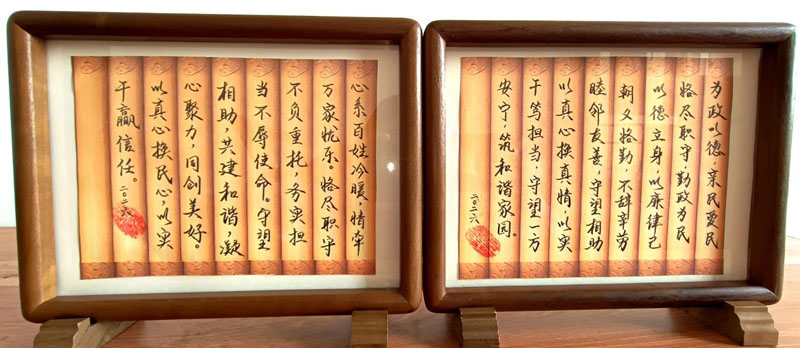 为政以德，亲民爱民
恪尽职守勤政为民
以德立身以廉律己
朝夕恪勤，不辞辛劳
睦邻友善，守望相助
以真心换真情，以实
干笃担当，守望一方
安宁，筑和谐家园。
二〇二六
心系百姓冷暖，情牵
万家忧乐。恪尽职守
不负重托，务实担
当不辱使命。守望
相助，共建和谐，凝
心聚力，同创美好。
以真心换民心，以实
干赢信任。二〇二六